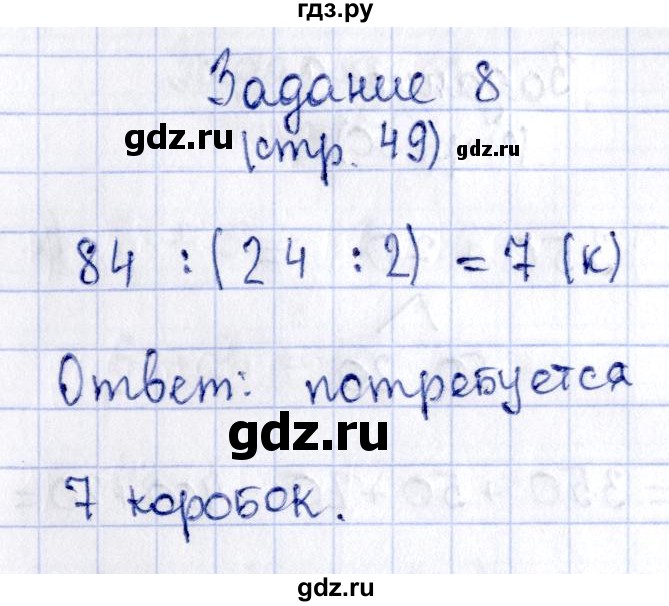 гдз.ру
Задание 8
gdz.ru
(стр. 49)
gdz.ru
84 : (24 : 2) = 7 (к)
Ответ: потребуется
gdz.ru
7 коробок.
gdz.ru